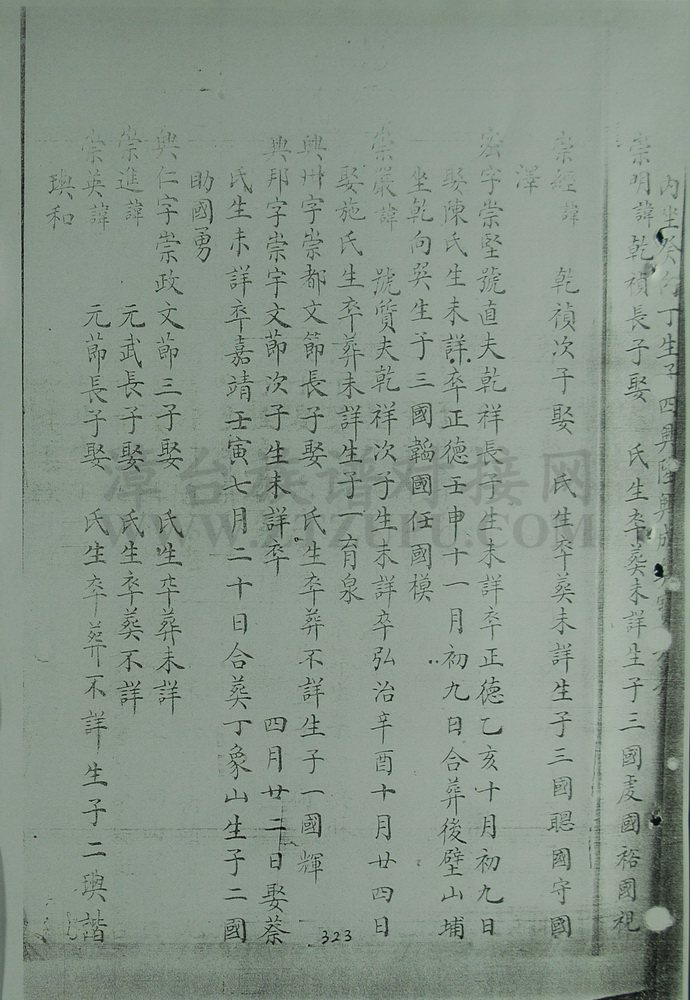 内坐癸向丁生子四興陸興成
崇明諱乾禎長子娶 氏生卒葬未詳生子三國虔國裕國祀
崇經諱 乾禎次子娶 氏生卒葬未詳生子三國聰國守國
澤
宏字崇堅號直夫乾祥長子生未詳卒正德乙亥十月初九日
娶陳氏生未詳卒正德壬申十一月初九日合葬後壁山埔
坐乾向巽生子三國韜國任國模
崇嚴諱 號質夫乾祥次子生未詳卒弘治辛酉十月廿四日
娶施氏生卒葬未詳生子一育泉
興州字崇都文節長子娶 氏生卒葬不詳生子一國輝
興邦字崇字文節次子生未詳卒 四月廿二日娶蔡
氏生未詳卒嘉靖壬寅七月二十日合葬丁象山生子二國
助國勇
興仁字崇政文節三子娶 氏生卒葬未詳
崇進諱 元武長子娶 氏生卒葬不詳
崇英諱 元節長子娶 氏生卒葬不詳生子二璵諧
璵和
323
漳台族谱对接网
WWW.ZTZUPU.COM